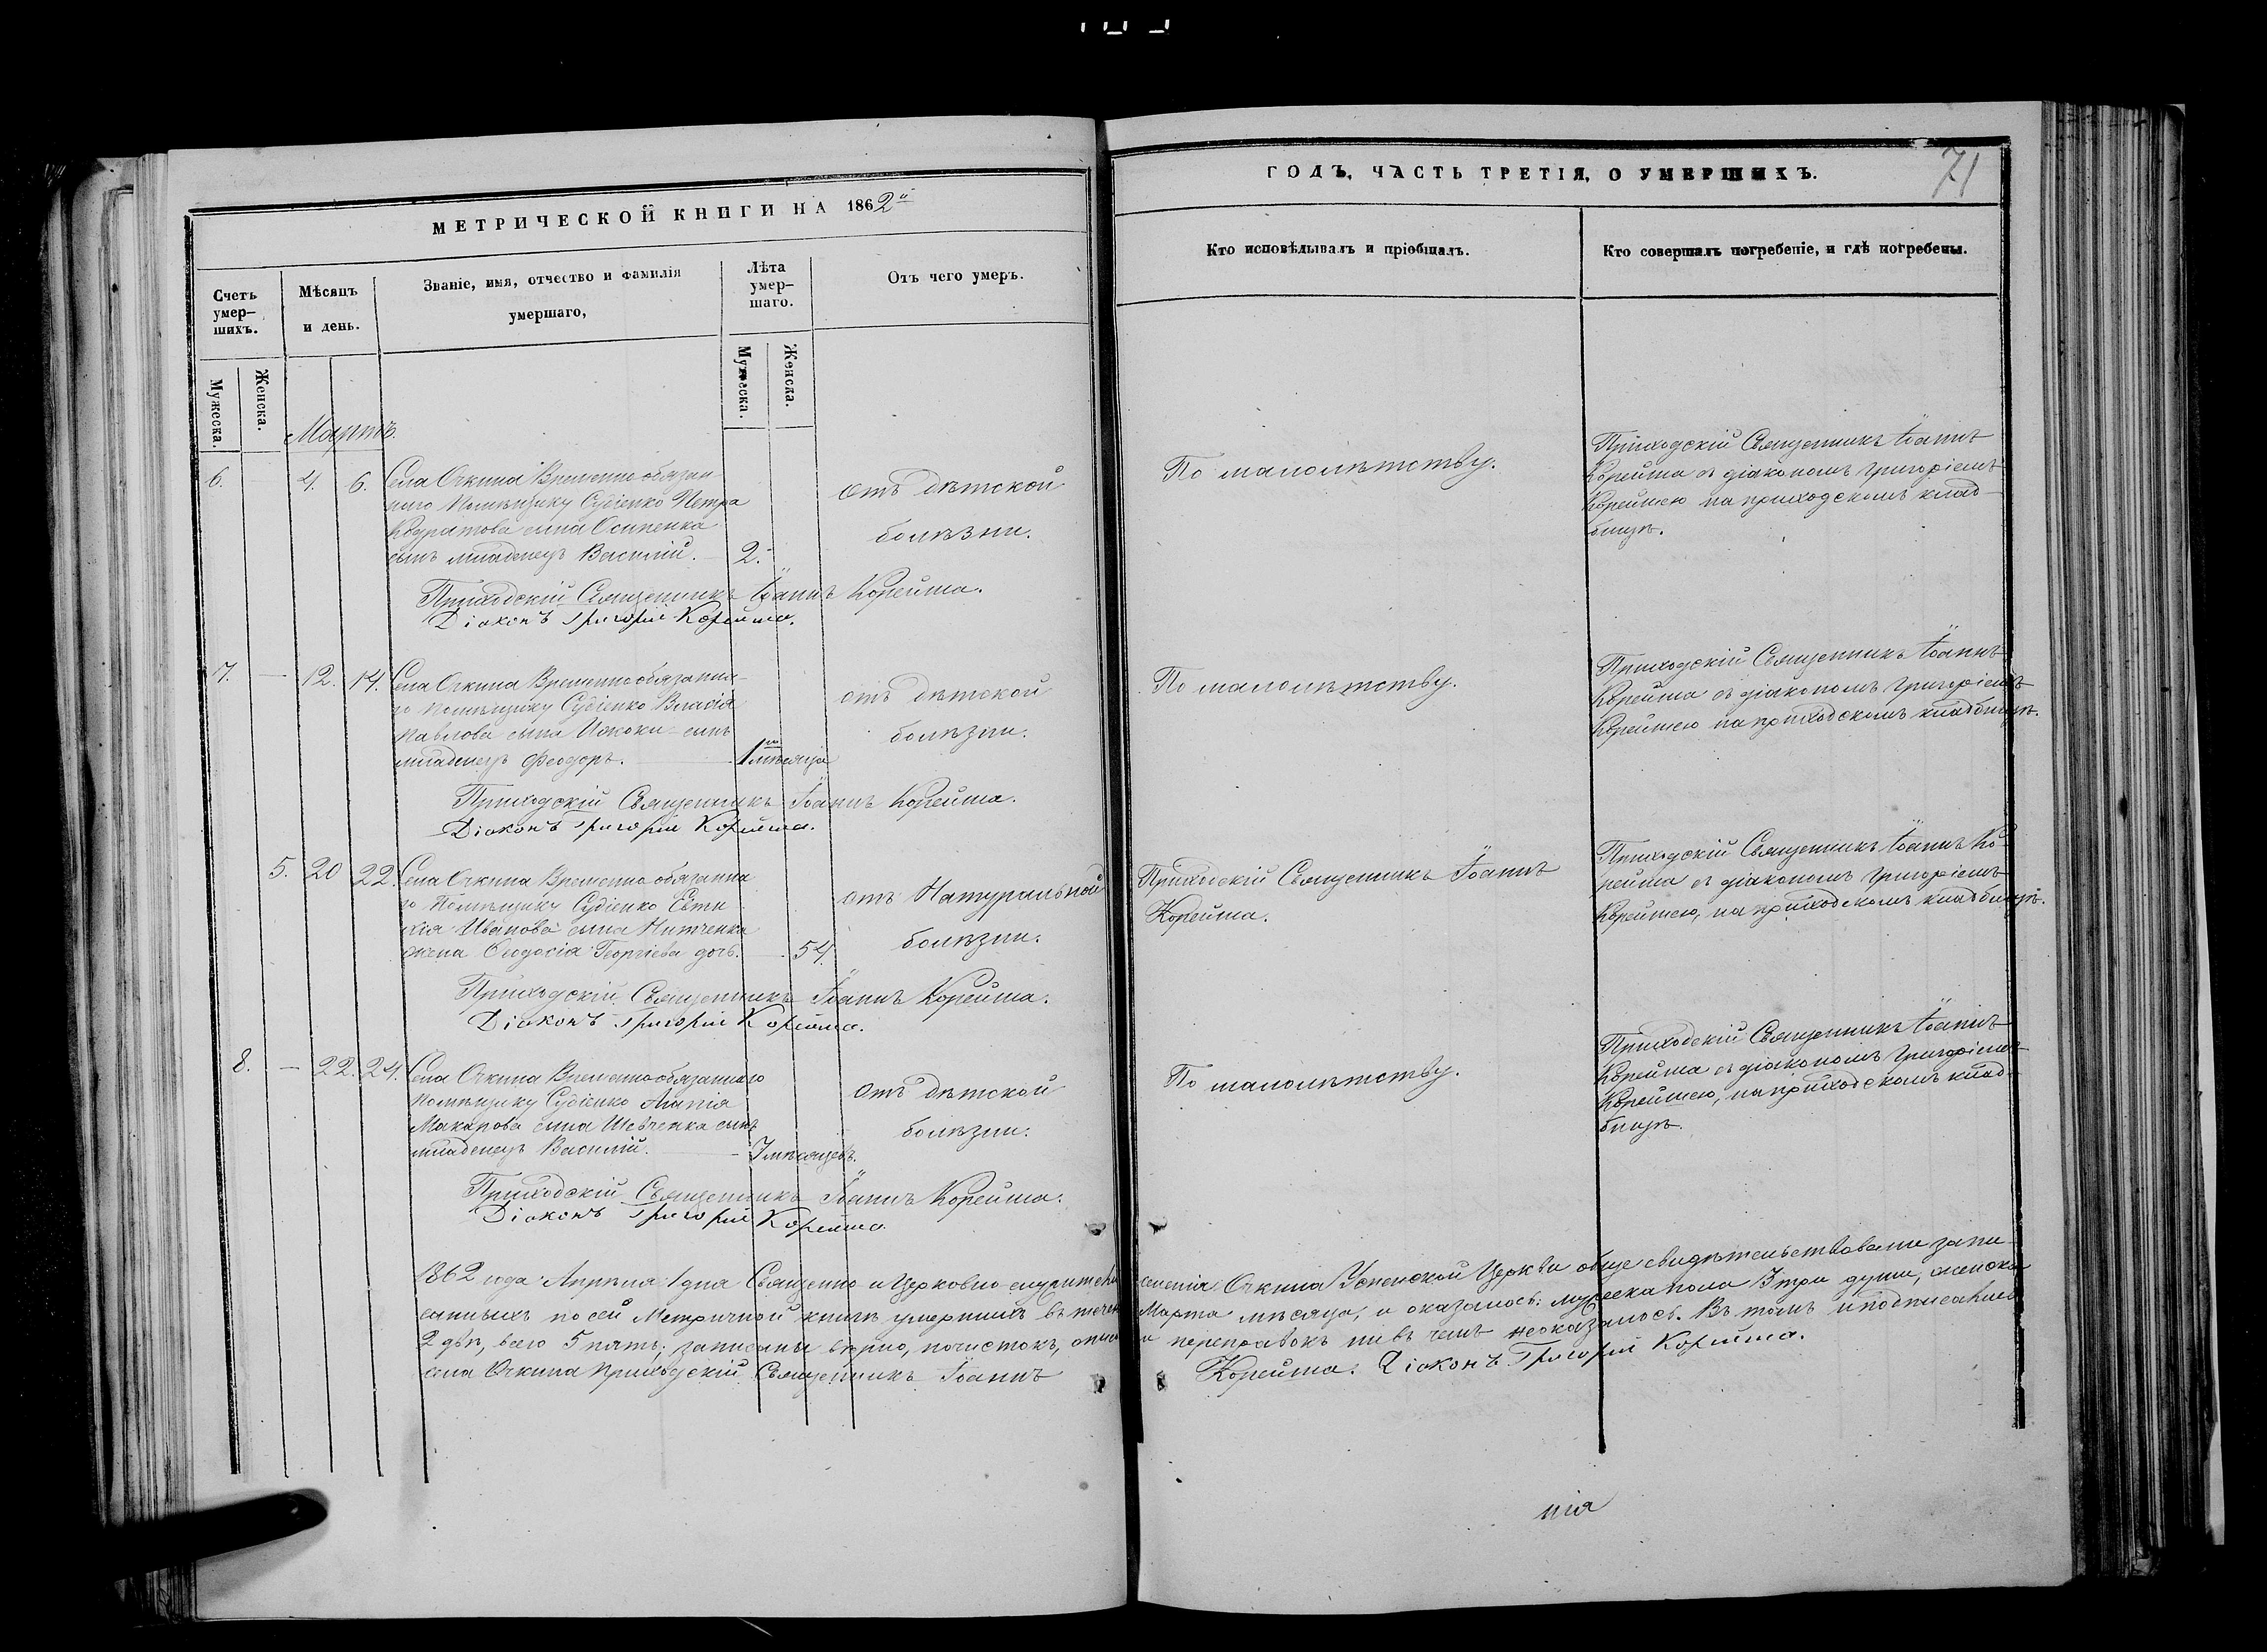 МЕТРИЧЕСКОЙ КНИГИ НА 1862й
ГОДЪ, ЧАСТЬ ТРЕТІЯ, О УМЕРШИХЪ.
71
Счетъ умер-шихъ.
Мѣсяцъ и день.
Званіе, имя, отчество и фамилія
умершаго,
Лѣта умер-шаго.
Отъ чего умеръ.
Кто исповѣдывалъ и пріобщалъ.
Кто совершалъ погребеніе, и гдѣ погребены.
Мужеска.
Женска.
Мужеска.
Женска.
Мартъ.
6. 4. 6.
Села Очкина Временно обязан
наго Помѣщику Судіенко Петра
Кодратова сына Осипенка
сынъ младенецъ Василій. 2.
отъ дѣтской
болѣзни.
По малолѣтству.
Приходскій Священникъ Іоаннъ
Корейша съ діакономъ Григоріемъ
Корейшею на приходскомъ клад-
бищѣ.
Приходскій Священникъ Іоаннъ Корейша.
Діаконъ Григорій Корейша.
7. — 12. 14.
Села Очкина Временно обязанна-
го Помѣщику Судіенко Власія
Павлова сына сынъ
младенецъ Феодоръ. 1го мѣсяца
отъ дѣтской
болѣзни.
По малолѣтству.
Приходскій Священникъ Іоаннъ
Корейша съ діакономъ Григоріемъ
Корейшею на приходскомъ кладбищѣ.
Приходскій Священникъ Іоаннъ Корейша.
Діаконъ Григорій Корейша.
5. 20 22.
Села Очкина Временно обязанна
го Помѣщику Судіенко Евти
хія Иванова сына Нитченка
жена Феодосія Георгіева дочь. 54.
отъ Натуральной
болѣзни.
Приходскій Священникъ Іоаннъ
Корейша.
Приходскій Священникъ Іоаннъ Ко-
рейша съ діакономъ Григоріемъ
Корейшею, на приходскомъ кладбищѣ.
Приходскій Священникъ Іоаннъ Корейша.
Діаконъ Григорій Корейша.
8. — 22. 24.
Села Очкина Временно обязаннаго
Помѣщику Судіенко
Макарова сына Шевченка сынъ
младенецъ Василій. 7 мѣсяцевъ.
отъ дѣтской
болѣзни.
По малолѣтству.
Приходскій Священникъ Іоаннъ
Корейша съ діакономъ Григоріемъ
Корейшею, на приходскомъ клад-
бищѣ.
Приходскій Священникъ Іоаннъ Корейша.
Діаконъ Григорій Корейша.
1862 года Апрѣля 1 дня Священно и Церковно-служители селенія Очкина Успенской Церкви обще свидѣтельствовали запи-
санныхъ по сей Метричной книгѣ умершихъ въ теченіи Марта мѣсяца, и оказалось: мужеска пола 3 три души, женска
2 двѣ, всего 5 пять; записаны вѣрно, почистокъ, и переправокъ ни въ чемъ неоказалось. Въ томъ и подписались
села Очкина Приходскій Священникъ Іоаннъ Корейша. Діаконъ Григорій Корейша.
нія